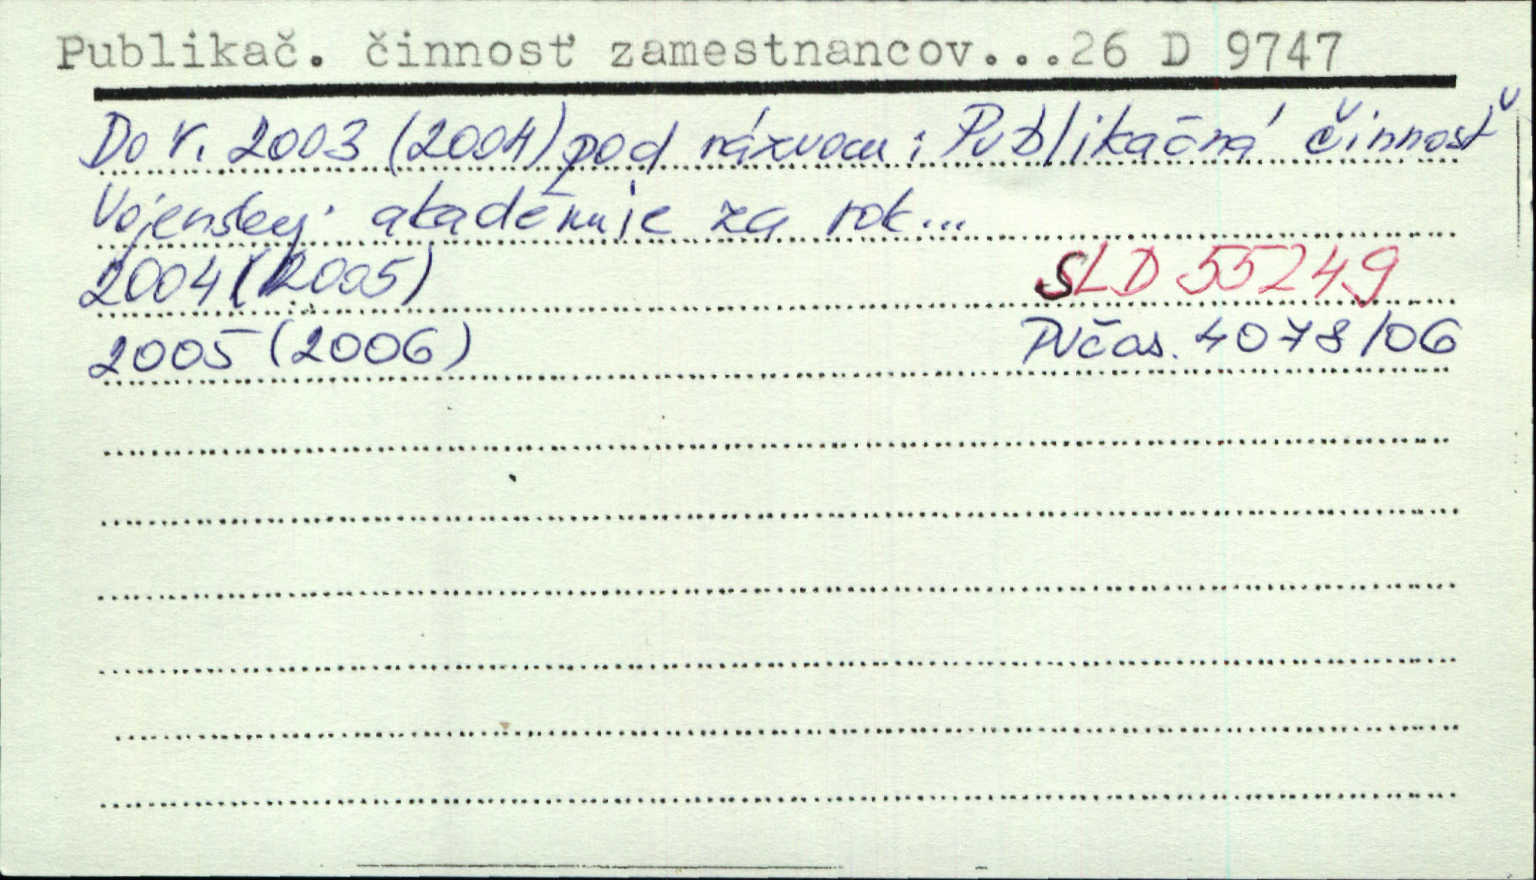 Publikač. činnosť zamestnancov...26 D 9747
Do r. 2003 (2004) pod názvom: Publikačná činnosť
Vojenskej akadémie za rok...
2004 (2005) SLD 55249
2005 (2006) PVčas. 4078/06